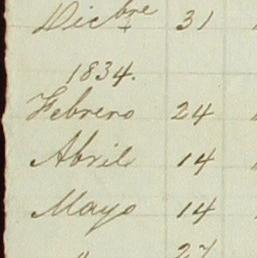 Dicbre 31
1834.
Febrero 24
Abril 14
Mayo 14
" 27